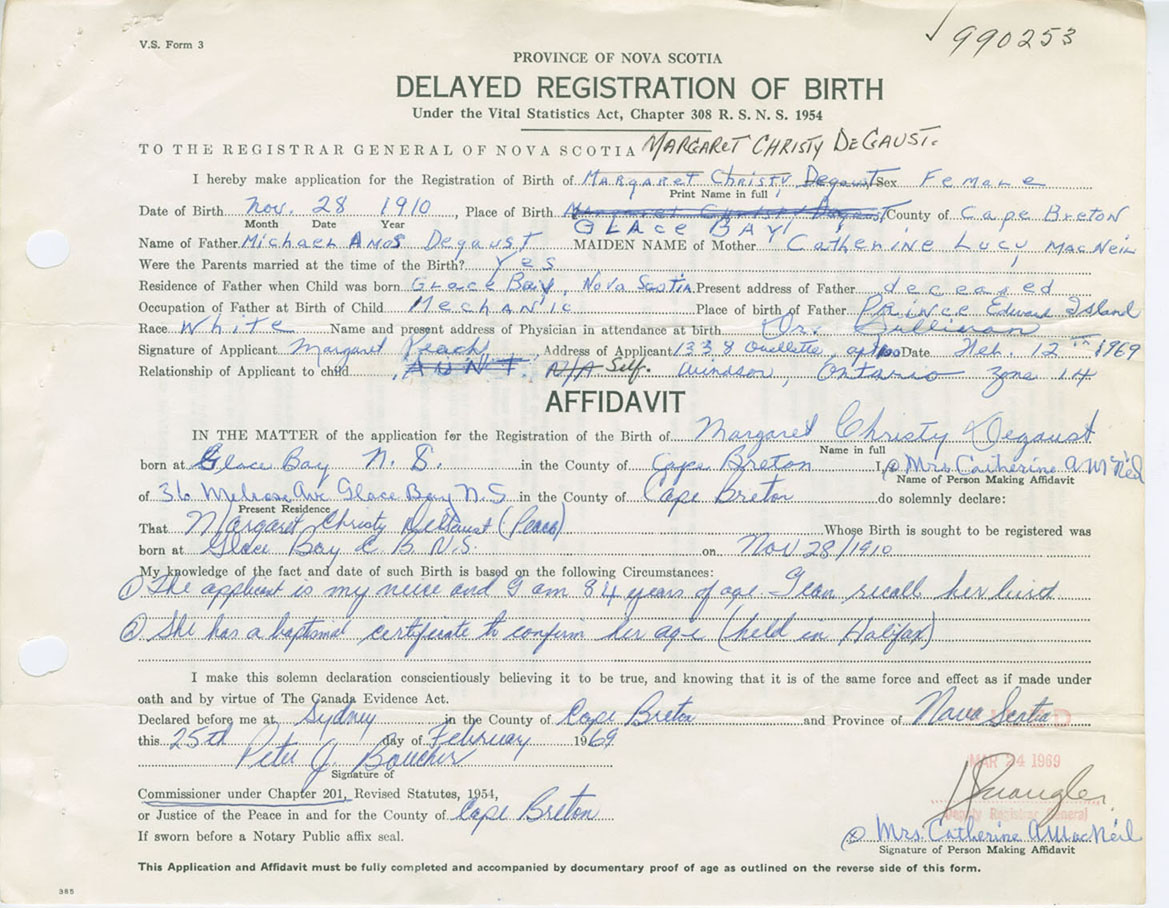 V.S. Form 3
990253
PROVINCE OF NOVA SCOTIA
DELAYED REGISTRATION OF BIRTH
Under the Vital Statistics Act, Chapter 308 R. S. N. S. 1954
TO THE REGISTRAR GENERAL OF NOVA SCOTIA MARGARET CHRISTY DEGAUST.
I hereby make application for the Registration of Birth of Margaret Christy Degaust Sex Female
Print Name in full
Date of Birth Nov. 28 1910, Place of Birth Margaret Christy Degaust County of Cape Breton
Month Date Year GLACE BAY
Name of Father Michael Amos Degaust MAIDEN NAME of Mother Catherine Lucy MacNeil
Were the Parents married at the time of the Birth? Yes
Residence of Father when Child was born Glace Bay, Nova Scotia Present address of Father deceased
Occupation of Father at Birth of Child Mechanic Place of birth of Father Prince Edward Island
Race White Name and present address of Physician in attendance at birth Dr. Sullivan
Signature of Applicant Margaret Peach Address of Applicant 1338 Ouellette, Date Feb. 12th 1969
Relationship of Applicant to child AUNT N/A Self. Windsor, Ontario zone 14
AFFIDAVIT
IN THE MATTER of the application for the Registration of the Birth of Margaret Christy Degaust
Name in full
born at Glace Bay N. S. in the County of Cape Breton I, Mrs. Catherine A McNeil
Name of Person Making Affidavit
of 36 Melrose Ave Glace Bay N.S in the County of Cape Breton do solemnly declare:
Present Residence
That Margaret Christy DeGaust Whose Birth is sought to be registered was
born at Glace Bay C B N.S. on Nov 28/1910
My knowledge of the fact and date of such Birth is based on the following Circumstances:
① The applicant is my neice and I am 84 years of age. I can recall her birth
② She has a baptismal certificate to confirm her age (held in Halifax)
I make this solemn declaration conscientiously believing it to be true, and knowing that it is of the same force and effect as if made under
oath and by virtue of The Canada Evidence Act.
Declared before me at Sydney in the County of Cape Breton and Province of Nova Scotia
this 25th day of February 1969
Peter J. Boucher
MAR 24 1969
Signature of
Commissioner under Chapter 201, Revised Statutes, 1954,
or Justice of the Peace in and for the County of Cape Breton
Deputy Registrar General
If sworn before a Notary Public affix seal.
Mrs. Catherine A MacNeil
Signature of Person Making Affidavit
This Application and Affidavit must be fully completed and accompanied by documentary proof of age as outlined on the reverse side of this form.
385